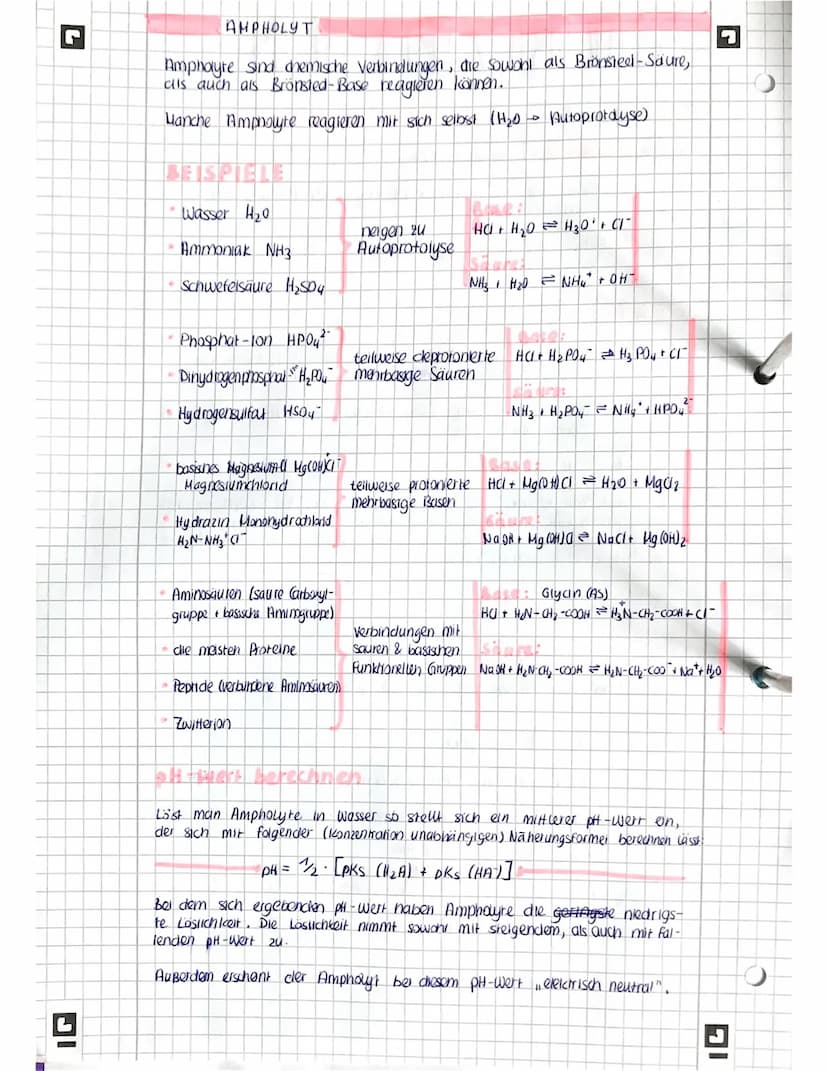 AMPHOLYT
Ampholyte sind chemische Verbindungen, die sowohl als Brönsted-Säure,
als auch als Brönsted-Base reagieren können.
Manche Ampholyte reagieren mit sich selbst (H₂O → Autoprotolyse)
BEISPIELE
• Wasser H₂O
• Ammoniak NH3
• Schwefelsäure H₂SO₄
neigen zu
Autoprotolyse
Base:
HCl + H₂O ⇌ H₃O⁺ + Cl⁻
Säure:
NH₃ + H₂O ⇌ NH₄⁺ + OH⁻
• Phosphat-Ion HPO₄²⁻
• Dihydrogenphosphat H₂PO₄⁻
• Hydrogensulfat HSO₄⁻
teilweise deprotonierte
mehrbasige Säuren
Base:
HCl + H₂PO₄⁻ ⇌ H₃PO₄ + Cl⁻
Säure:
NH₃ + H₂PO₄⁻ ⇌ NH₄⁺ + HPO₄²⁻
• basisches Mg(OH)Cl
Magnesiumchlorid
• Hydrazin Monohydrochlorid
H₂N-NH₃⁺Cl⁻
teilweise protonierte
mehrbasige Basen
Base:
HCl + Mg(OH)Cl ⇌ H₂O + MgCl₂
Säure:
NaOH + Mg(OH)Cl ⇌ NaCl + Mg(OH)₂
• Aminosäuren (saure Carboxyl-
gruppe + basische Aminogruppe)
• die meisten Proteine
• Peptide (verbundene Aminosäuren)
• Zwitterion
Verbindungen mit
sauren & basischen
Funktionellen Gruppen
Base: Glycin (AS)
HCl + H₂N-CH₂-COOH ⇌ H₃N⁺-CH₂-COOH + Cl⁻
Säure:
NaOH + H₂N-CH₂-COOH ⇌ H₂N-CH₂-COO⁻ + Na⁺ + H₂O
pH-Wert berechnen
Löst man Ampholyte in Wasser so stellt sich ein mittlerer pH-Wert ein,
der sich mit folgender (Konzentration unabhängigen) Näherungsformel berechnen lässt:
pH = 1/2 · [pKs (H₂A) + pKs (HA⁻)]
Bei dem sich ergebenden pH-Wert haben Ampholyte die geringste niedrigs-
te Löslichkeit. Die Löslichkeit nimmt sowohl mit steigendem, als auch mit fal-
lenden pH-Wert zu.
Außerdem erscheint der Ampholyt bei diesem pH-Wert „elektrisch neutral".